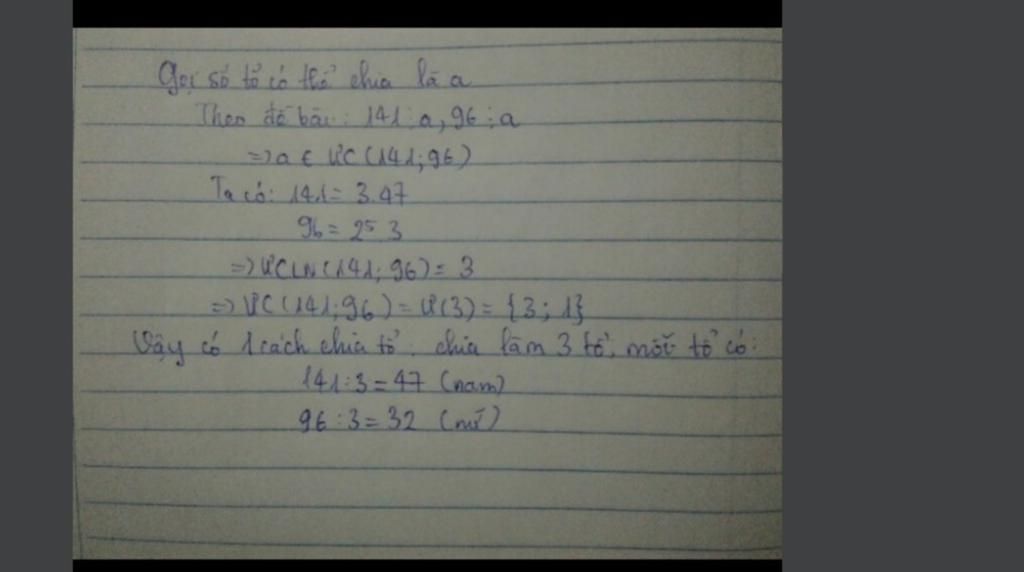 Gọi số tổ có thể chia là a
Theo đề bài: 141 ⋮ a, 96 ⋮ a
=> a ∈ ƯC (141; 96)
Ta có: 141 = 3.47
96 = 2⁵.3
=> ƯCLN (141; 96) = 3
=> ƯC (141; 96) = Ư(3) = {3; 1}
Vậy có 1 cách chia tổ: chia làm 3 tổ, mỗi tổ có:
141 : 3 = 47 (nam)
96 : 3 = 32 (nữ)